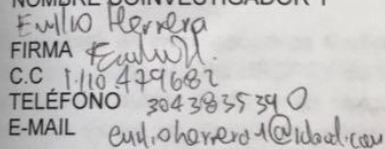 NOMBRE COINVESTIGADOR 1
Emilio Herrera
FIRMA
C.C 1.110.479682
TELÉFONO 3043835390
E-MAIL emilioherrera1@icloud.com